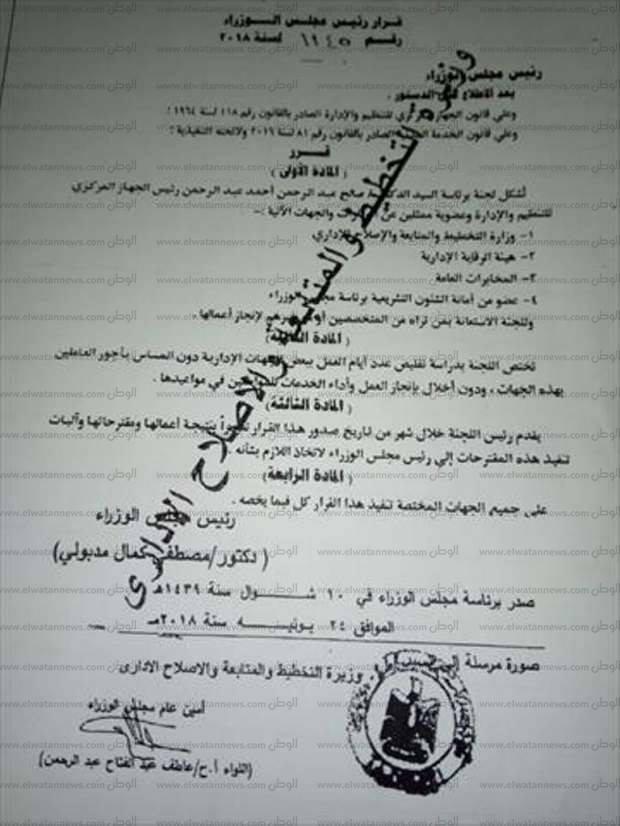 قرار رئيس مجلس الوزراء
رقم ١٢٤٥ لسنة ٢٠١٨
رئيس مجلس الوزراء
بعد الاطلاع على الدستور ،
وعلى قانون الجهاز المركزي للتنظيم والإدارة الصادر بالقانون رقم ١١٨ لسنة ١٩٦٤
وعلى قانون الخدمة المدنية الصادر بالقانون رقم ٨١ لسنة ٢٠١٦ ولائحته التنفيذية ؛
قرر
(المادة الأولى)
تُشكل لجنة برئاسة السيد الدكتور/ صالح عبد الرحمن أحمد عبد الرحمن رئيس الجهاز المركزي
للتنظيم والإدارة وعضوية ممثلين عن الوزارات والجهات الآتية :-
١- وزارة التخطيط والمتابعة والإصلاح الإداري
٢- هيئة الرقابة الإدارية
٣- المخابرات العامة
٤- عضو من أمانة الشئون التشريعية برئاسة مجلس الوزراء
وللجنة الاستعانة بمن تراه من المتخصصين أو غيرهم لإنجاز أعمالها .
(المادة الثانية)
تختص اللجنة بدراسة تقليص عدد أيام العمل ببعض الجهات الإدارية دون المساس بأجور العاملين
بهذه الجهات ، ودون أخلال بإنجاز العمل وأداء الخدمات للمواطنين في مواعيدها .
(المادة الثالثة)
يقدم رئيس اللجنة خلال شهر من تاريخ صدور هذا القرار تقريراً بنتيجة أعمالها ومقترحاتها وآليات
تنفيذ هذه المقترحات إلى رئيس مجلس الوزراء لاتخاذ اللازم بشأنه .
(المادة الرابعة)
على جميع الجهات المختصة تنفيذ هذا القرار كل فيما يخصه .
رئيس مجلس الوزراء
(دكتور/مصطفى كمال مدبولي)
صدر برئاسة مجلس الوزراء في ١٠ شوال سنة ١٤٣٩هـ
الموافق ٢٤ يونيه سنة ٢٠١٨مـ
صورة مرسلة إلى السيد وزيرة التخطيط والمتابعة والاصلاح الادارى
أمين عام مجلس الوزراء
(اللواء أ.ح/عاطف عبد الفتاح عبد الرحمن)
وزارة التخطيط والمتابعة والاصلاح الإداري
الوطن www.elwatannews.com